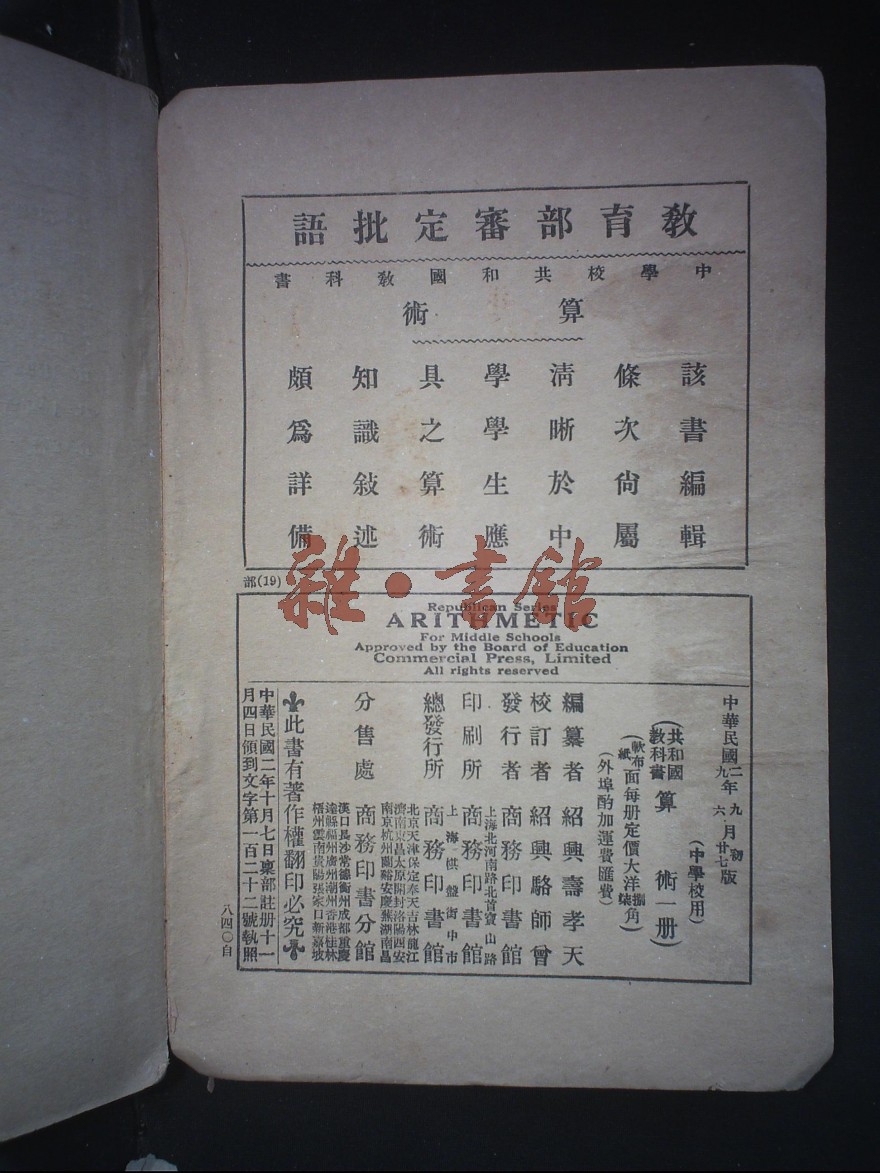 教育部審定批語
中學校共和國教科書
算術
該書編輯
條次尙屬
淸晰於中
學學生應
具之算術
知識敍述
頗爲詳備
部(19)
雜·書館
Republican Series
ARITHMETIC
For Middle Schools
Approved by the Board of Education
Commercial Press, Limited
All rights reserved
中華民國二年九月初版
九年六月廿七版
(中學校用)
(共和國教科書算術一册)
(紙面每册定價大洋角)
(軟布面每册定價大洋角)
(外埠酌加運費匯費)
編纂者 紹興壽孝天
校訂者 紹興駱師曾
發行者 商務印書館
上海北河南路北首寶山路
印刷所 商務印書館
上海棋盤街中市
總發行所 商務印書館
北京天津保定奉天吉林龍江
濟南東昌太原開封洛陽西安
南京杭州蘭谿安慶蕪湖南昌
分售處 商務印書分館
漢口長沙常德衡州成都重慶
達縣福州廣州潮州香港桂林
梧州雲南貴陽張家口新嘉坡
此書有著作權翻印必究
中華民國二年十月七日稟部註册十一
月四日領到文字第一百二十二號執照
八四〇自